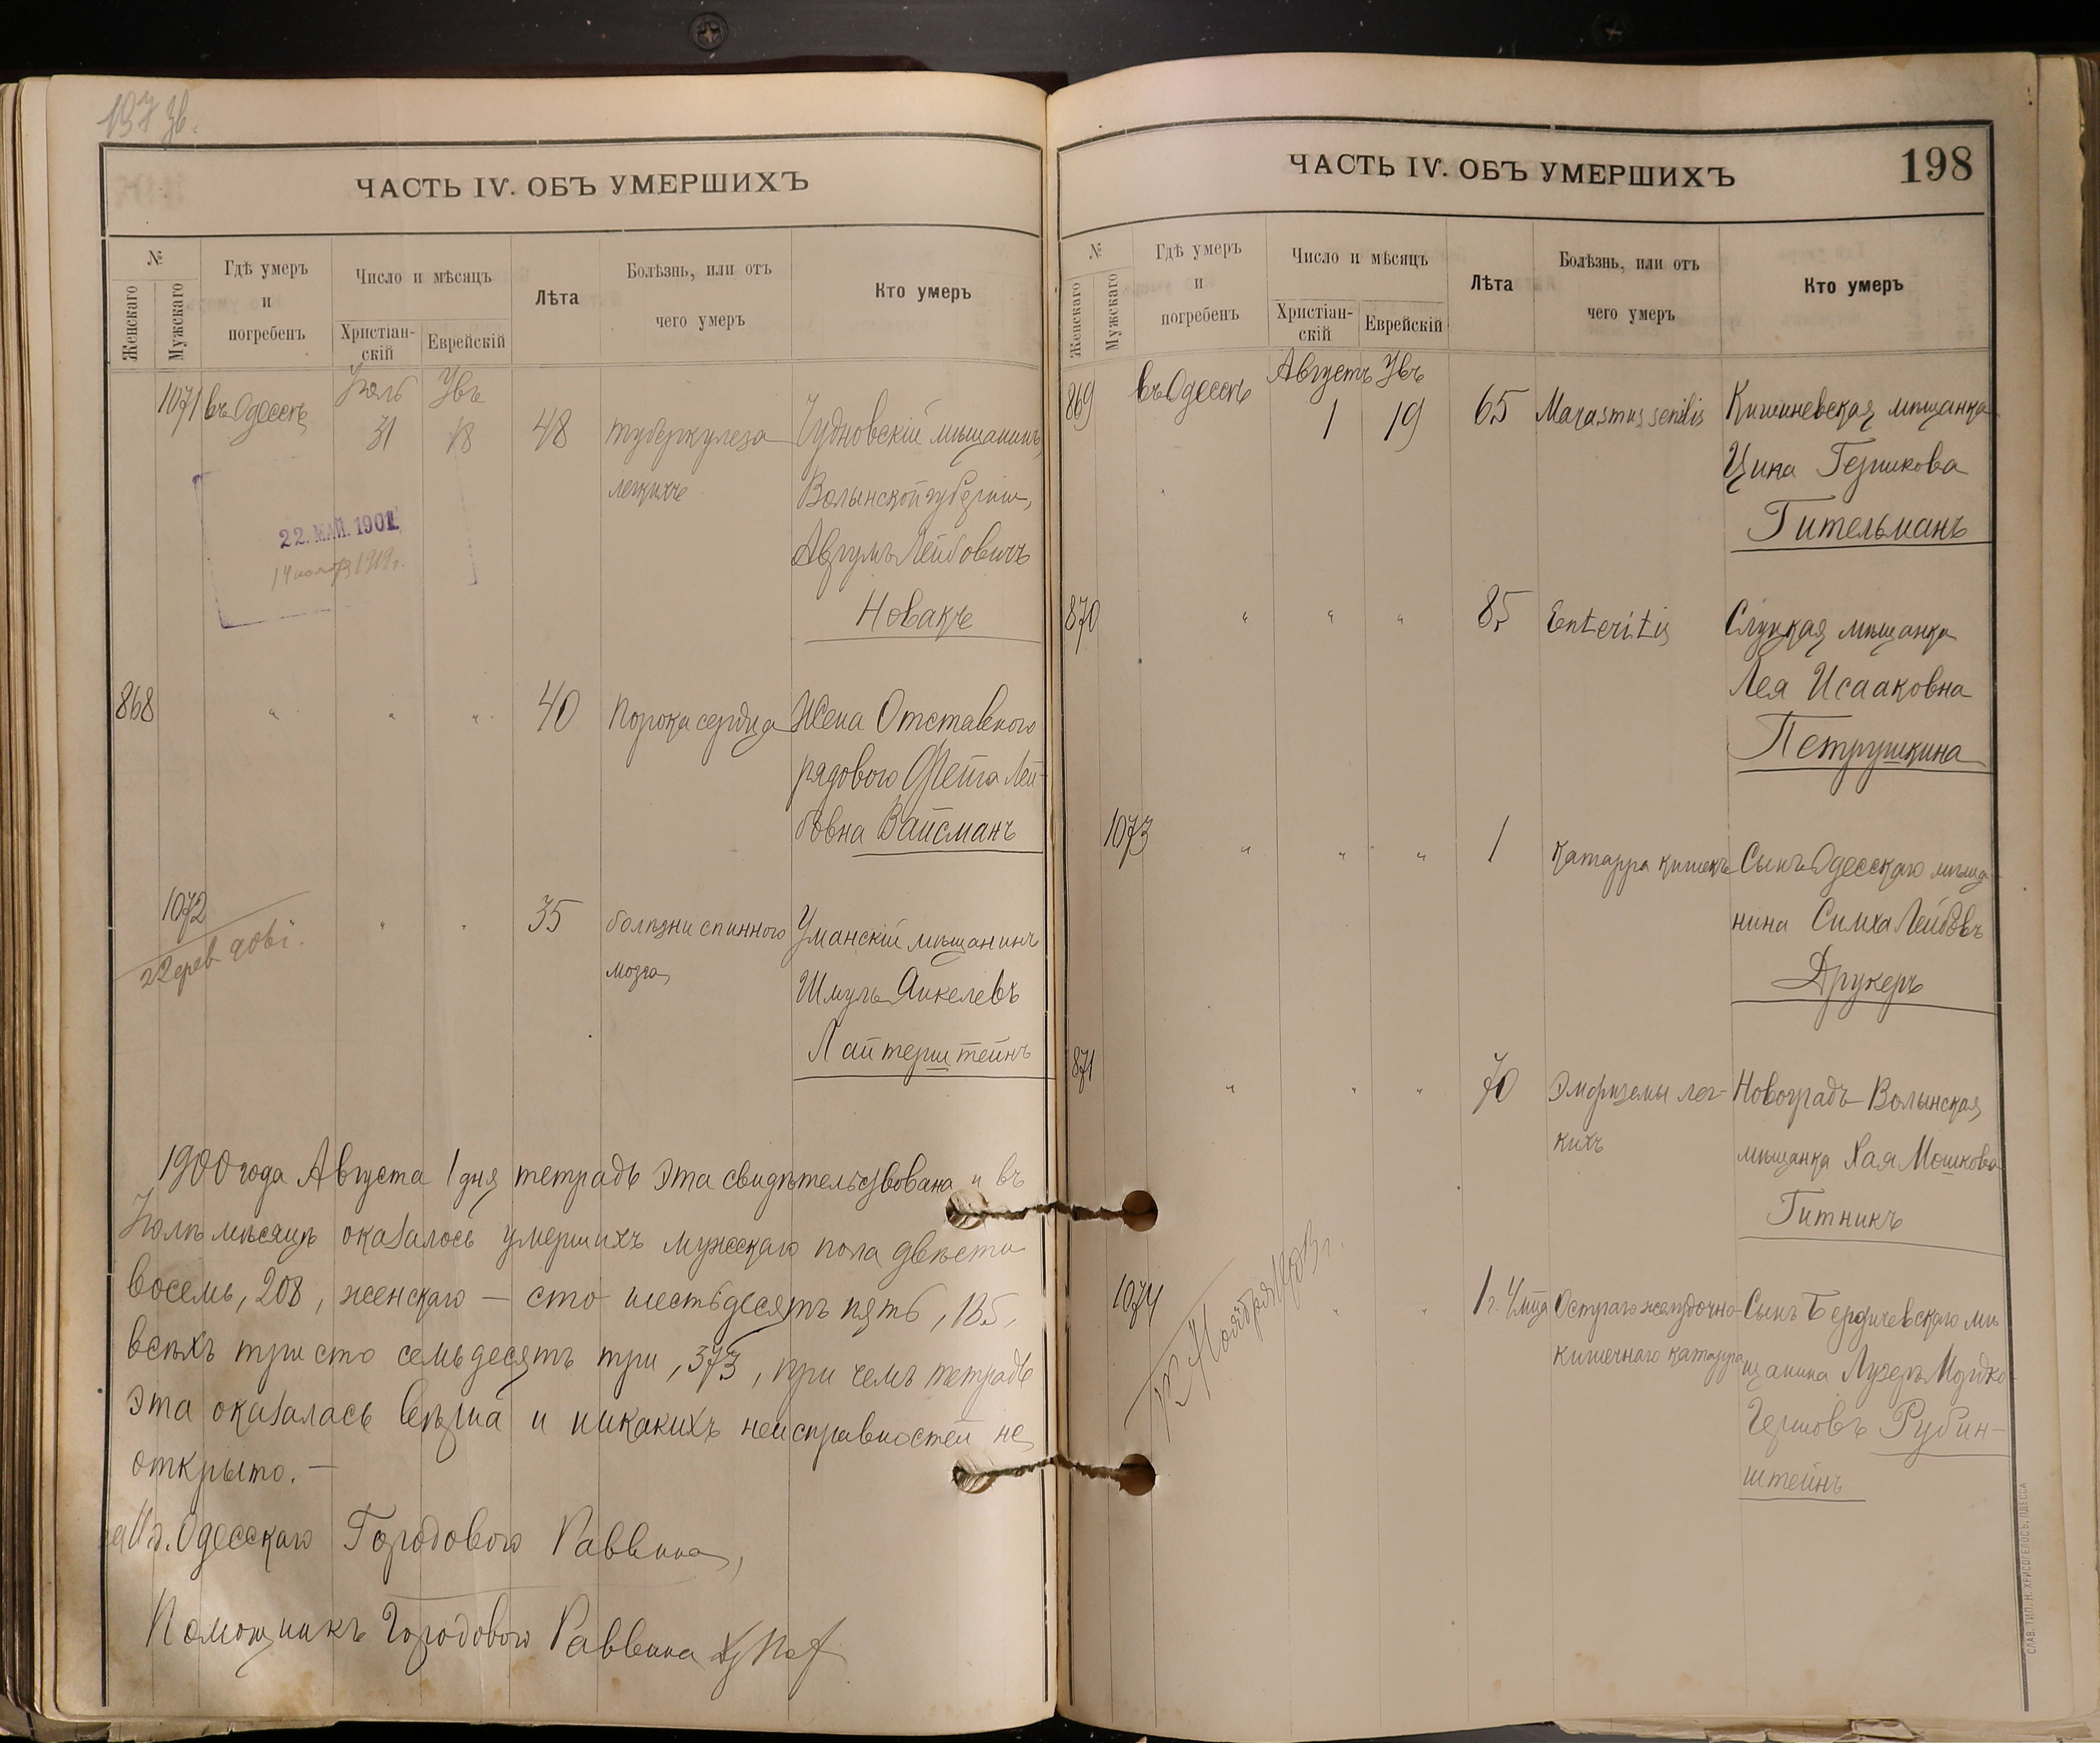 197 зв.
ЧАСТЬ IV. ОБЪ УМЕРШИХЪ
№
Женскаго
Мужскаго
Гдѣ умеръ
и
погребенъ
Число и мѣсяцъ
Христіан-
скій
Еврейскій
Лѣта
Болѣзнь, или отъ
чего умеръ
Кто умеръ
1071 въ Одессѣ Іюль 31 Увъ 18 48 туберкулеза Чудновскій мѣщанинъ,
легкихъ Волынской губерніи,
Аврумъ Лейбовичъ
Новакъ
22. МАЙ. 1901
14 ноября 1919 г.
868 " " " 40 порока сердца Жена Отставного
рядового Фейга Лей-
бовна Вайсманъ
1072 " " 35 болѣзни спинного Уманскій мѣщанинъ
мозга, Шмуль Янкелевъ
Лайтерштейнъ
1900 года Августа 1 дня тетрадь эта свидѣтельствована и въ
Іюлѣ мѣсяцѣ оказалось умершихъ мужскаго пола двѣсти
восемь, 208, женскаго — сто шестьдесятъ пять, 165,
всѣхъ триста семьдесятъ три, 373, при чемъ тетрадь
эта оказалась вѣрна и никакихъ неисправностей не
открыто. —
Одесскаго Городового Раввина,
Помощникъ Городового Раввина
ЧАСТЬ IV. ОБЪ УМЕРШИХЪ
198
№
Женскаго
Мужскаго
Гдѣ умеръ
и
погребенъ
Число и мѣсяцъ
Христіан-
скій
Еврейскій
Лѣта
Болѣзнь, или отъ
чего умеръ
Кто умеръ
869 въ Одессѣ Августъ 1 Увъ 19 65 Marasmus senilis Кишиневская мѣщанка
Ципа Гершкова
Гительманъ
870 " " " 85 Enteritis Слуцкая мѣщанка
Лея Исааковна
Петрушкина
1073 " " " 1 катарра кишекъ Сынъ Одесскаго мѣща-
нина Симха Лейбовъ
Друкеръ
871 " " " 70 Эмфиземы лег- Новоградъ-Волынская
кихъ мѣщанка Хая Мошкова
Гитникъ
1074 " " 1 г. 4 мца Остраго желудочно- Сынъ Бердичевскаго мѣ
кишечнаго катарра щанина Лузеръ Мордко-
Гершовъ Рубин-
штейнъ
Ноября 1903 г.
СЛАВ. ТИП. Н. ХРИСОГЕЛОСЪ, ОДЕССА